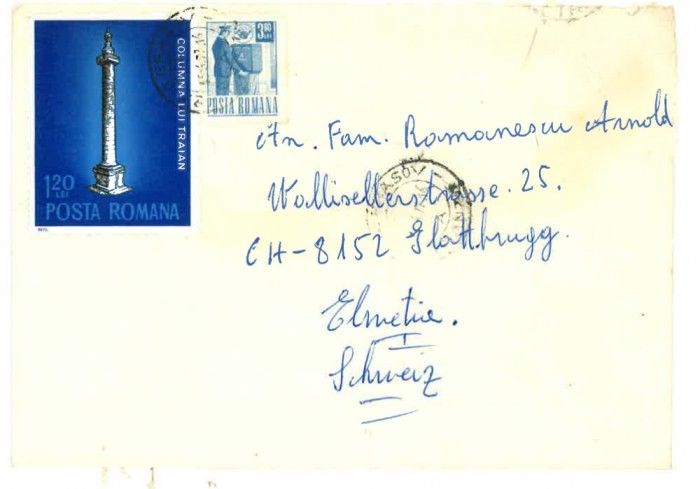 COLUMNA LUI TRAIAN
1.20
LEI
POSTA ROMANA
3.60
LEI
POSTA ROMANA
An. Fam. Romanescu Arnold
Wallisellerstrasse. 25.
CH-8152 Glattbrugg.
Elvetia.
Schweiz